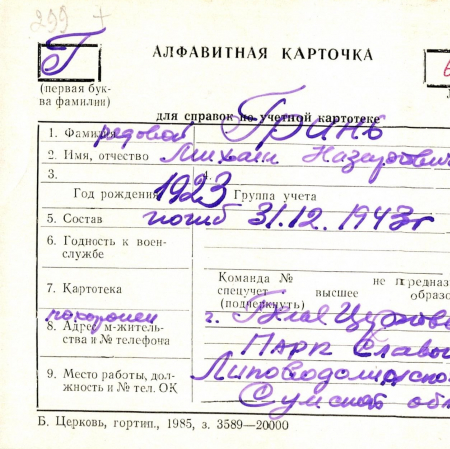 299 +
Г
АЛФАВИТНАЯ КАРТОЧКА
(первая бук-
ва фамилии)
для справок по учетной картотеке
1. Фамилия рядовой Гринь
2. Имя, отчество Михаил Назарович
3. 4.
Год рождения 1923 Группа учета
5. Состав погиб 31.12.1943г
6. Годность к воен-
службе
7. Картотека
Команда № не предназ
спецучет высшее образо
(подчеркнуть)
похоронен г. Белая Церковь
8. Адрес м-житель-
ства и № телефона
Парк Славы
9. Место работы, дол-
жность и № тел. ОК
Липоводолинско
Сумской обл
Б. Церковь, гортип., 1985, з. 3589—20000